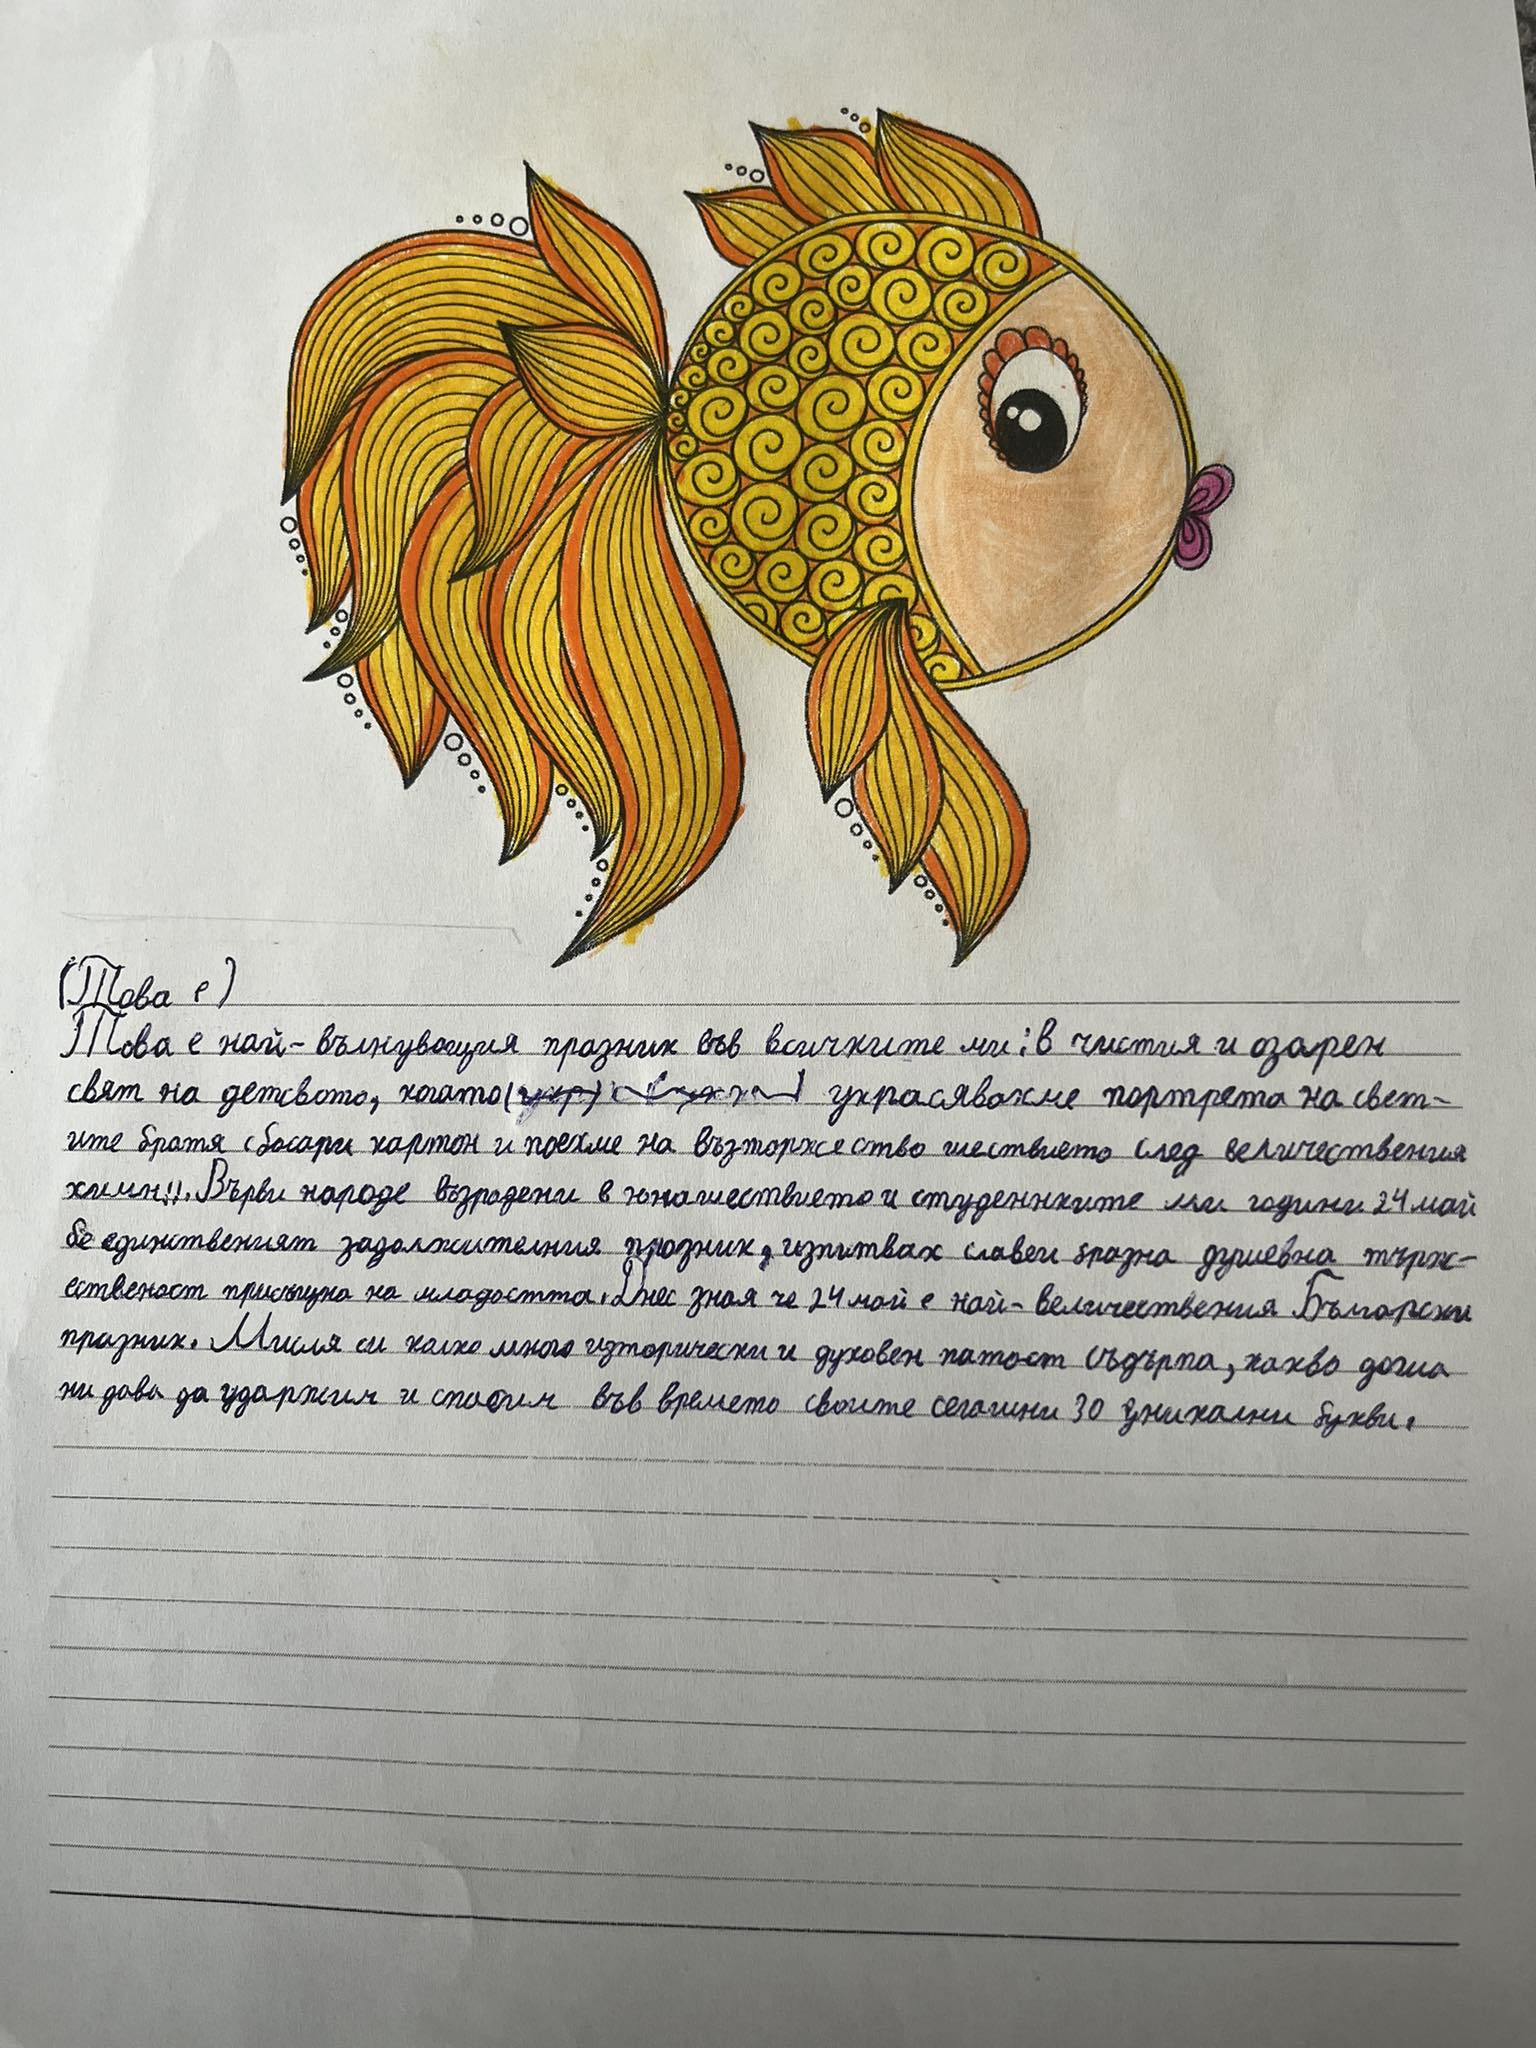 (Това е)
Това е най-вълнуващия празник във всичките ми: в чистия и озарен
свят на детсвото, когато украсявахме портрета на свет-
ите братя с босари картон и поехме на възторжество шествието след величествения
химн!!. Върви народе възродени в юнашествието и студеннките ми години 24 май
бе единственият задолжителния празник, изпитвах славеи бразна душевна търж-
ественост присъщна на младостта. Днес зная че 24 май е най-величествения Български
празник. Мисля си колко много изторически и духовен патост съдърпа, какво догиа
ни дава да ударжим и спасим във времето своите сегашни 30 уникални букви.